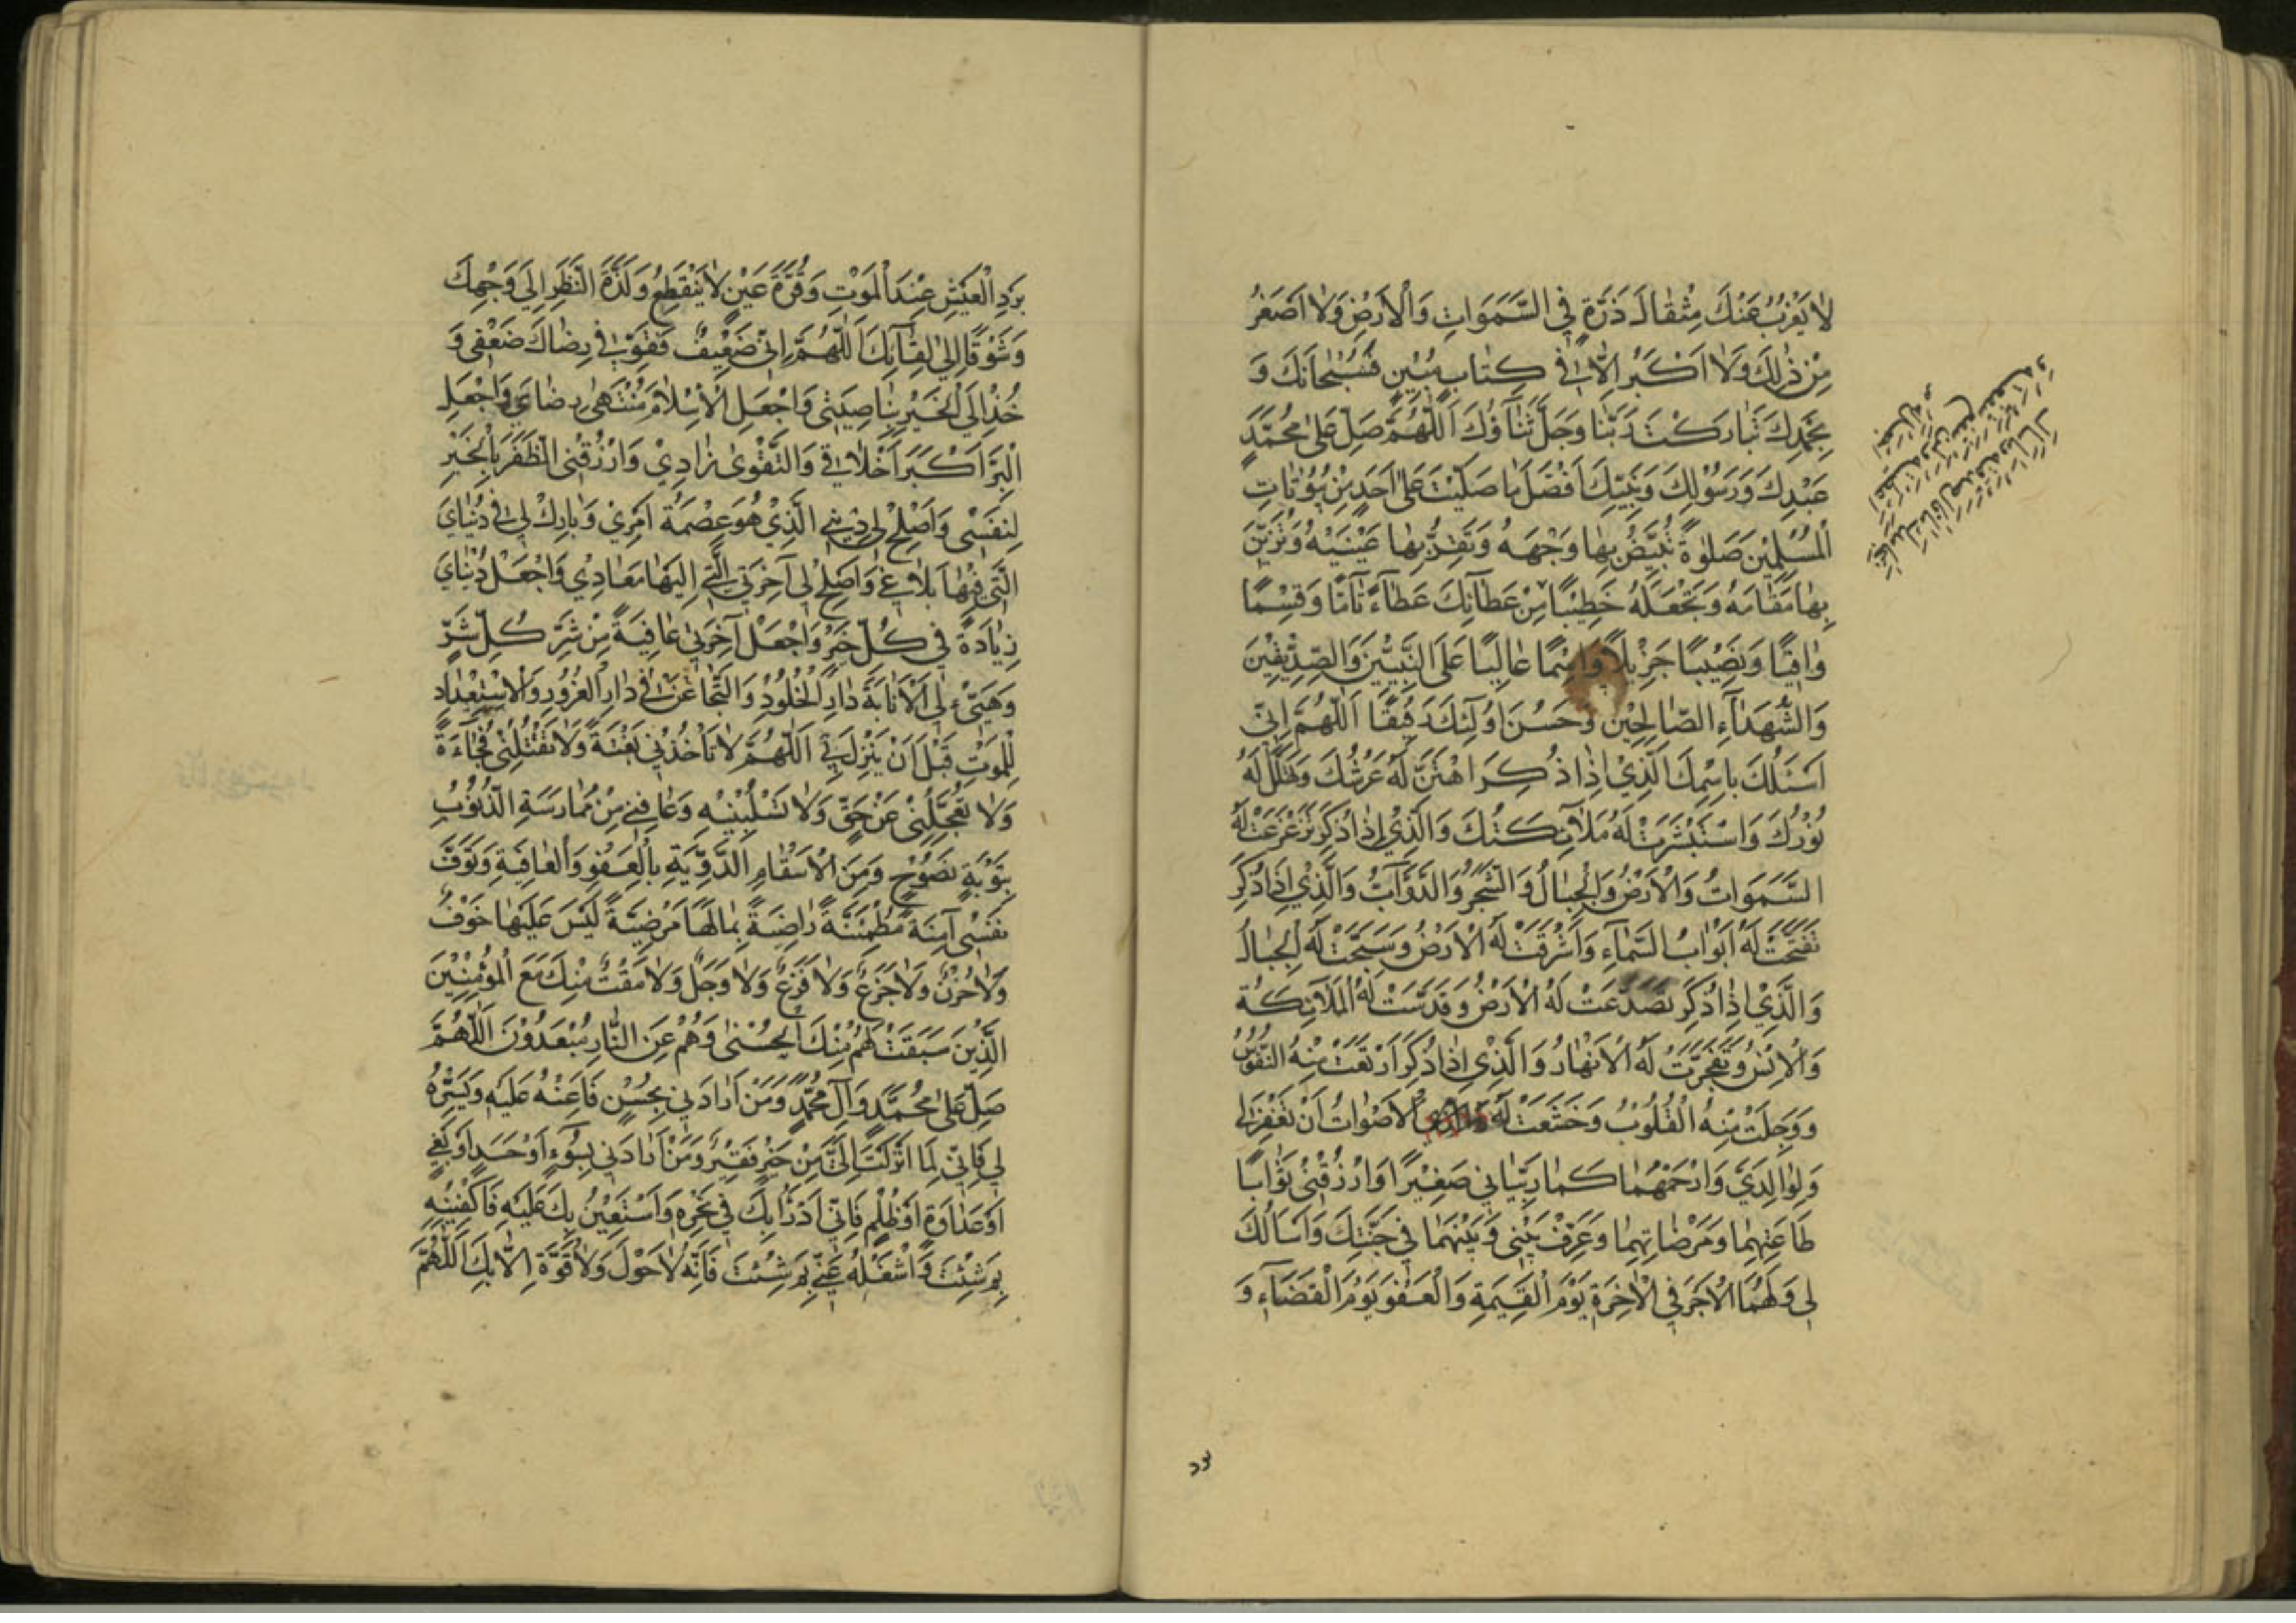 لَا يَعْزُبُ عَنْكَ مِثْقَالَ ذَرَّةٍ فِي السَّمَوَاتِ وَالْاَرْضِ وَلَا اَصْغَرُ
مِنْ ذٰلِكَ وَلَا اَكْبَرُ اِلَّا فِي كِتَابٍ مُبِيْنٍ فَسُبْحَانَكَ وَ
بِحَمْدِكَ تَبَارَكْتَ رَبَّنَا وَجَلَّ ثَنَآؤُكَ اَللّٰهُمَّ صَلِّ عَلٰى مُحَمَّدٍ
عَبْدِكَ وَرَسُوْلِكَ وَنَبِيِّكَ اَفْضَلَ مَا صَلَّيْتَ عَلٰى اَحَدٍ مِنْ بُيُوْتَاتِ
الْمُسْلِمِيْنَ صَلٰوةً تُبَيِّضُ بِهَا وَجْهَهُ وَتَقِرُّ بِهَا عَيْنَيْهِ وَتُزَيِّنُ
بِهَا مَقَامَهُ وَتَجْعَلَهُ خَطِيْبًا مِنْ عَطَآئِكَ عَطَآءً تَآمًّا وَقِسْمًا
وَافِيًا وَنَصِيْبًا جَزِيْلًا وَاسْمًا عَالِيًا عَلَى النَّبِيِّيْنَ وَالصِّدِّيْقِيْنَ
وَالشُّهَدَآءِ الصَّالِحِيْنَ وَحَسُنَ اُولٰئِكَ رَفِيْقًا اَللّٰهُمَّ اِنِّي
اَسْئَلُكَ بِاسْمِكَ الَّذِيْ اِذَا ذُكِرَ اهْتَزَّ لَهُ عَرْشُكَ وَتَهَلَّلَ لَهُ
نُوْرُكَ وَاسْتَبْشَرَتْ لَهُ مَلَآئِكَتُكَ وَالَّذِيْ اِذَا ذُكِرَ تَزَعْزَعَتْ لَهُ
السَّمَوَاتُ وَالْاَرْضُ وَالْجِبَالُ وَالشَّجَرُ وَالدَّوَآبُّ وَالَّذِيْ اِذَا ذُكِرَ
تَفَتَّحَتْ لَهُ اَبْوَابُ السَّمَآءِ وَاَشْرَقَتْ لَهُ الْاَرْضُ وَسَبَّحَتْ لَهُ الْجِبَالُ
وَالَّذِيْ اِذَا ذُكِرَ تَصَدَّعَتْ لَهُ الْاَرْضُ وَقَدَّسَتْ لَهُ الْمَلَآئِكَةُ
وَالْاِنْسُ وَتَفَجَّرَتْ لَهُ الْاَنْهَارُ وَالَّذِيْ اِذَا ذُكِرَ ارْتَعَدَتْ مِنْهُ النُّفُوْسُ
وَوَجِلَتْ مِنْهُ الْقُلُوْبُ وَخَشَعَتْ لَهُ الْاَصْوَاتُ اَنْ تَغْفِرَ لِي
وَلِوَالِدَيَّ وَارْحَمْهُمَا كَمَا رَبَّيَانِي صَغِيْرًا وَارْزُقْنِي ثَوَابَ
طَاعَتِهِمَا وَمَرْضَاتِهِمَا وَعَرِّفْ بَيْنِي وَبَيْنَهُمَا فِي جَنَّتِكَ وَاَسْاَلُكَ
لِي وَلَهُمَا الْاَجْرَ فِي الْاٰخِرَةِ يَوْمَ الْقِيٰمَةِ وَالْعَفْوَ يَوْمَ الْقَضَآءِ وَ
بَرْدَ الْعَيْشِ عِنْدَ الْمَوْتِ وَقُرَّةَ عَيْنٍ لَا يَنْقَطِعُ وَلَذَّةَ النَّظَرِ اِلٰى وَجْهِكَ
وَشَوْقًا اِلٰى لِقَآئِكَ اَللّٰهُمَّ اِنِّي ضَعِيْفٌ فَقَوِّ فِي رِضَاكَ ضَعْفِي وَ
خُذْ اِلَى الْخَيْرِ بِنَاصِيَتِي وَاجْعَلِ الْاِسْلَامَ مُنْتَهٰى رِضَايَ وَاجْعَلِ
الْبِرَّ اَكْبَرَ اَخْلَاقِي وَالتَّقْوٰى زَادِيْ وَارْزُقْنِي الظَّفَرَ بِالْخَيْرِ
لِنَفْسِي وَاَصْلِحْ لِي دِيْنِيَ الَّذِيْ هُوَ عِصْمَةُ اَمْرِيْ وَبَارِكْ لِي فِي دُنْيَايَ
الَّتِي فِيْهَا بَلَاغِي وَاَصْلِحْ لِي آخِرَتِيَ الَّتِي اِلَيْهَا مَعَادِيْ وَاجْعَلْ دُنْيَايَ
زِيَادَةً فِي كُلِّ خَيْرٍ وَاجْعَلْ آخِرَتِي عَافِيَةً مِنْ شَرِّ كُلِّ شَرٍّ
وَهَيِّئْ لِيَ الْاِنَابَةَ دَارِ الْخُلُوْدِ وَالتَّجَافِيَ عَنْ دَارِ الْغُرُوْرِ وَالْاِسْتِعْدَادَ
لِلْمَوْتِ قَبْلَ اَنْ يَنْزِلَ بِي اَللّٰهُمَّ لَا تَاْخُذْنِي بَغْتَةً وَلَا تَقْتُلْنِي فُجَاءَةً
وَلَا تُعَجِّلْنِي عَنْ حَقٍّ وَلَا تَسْلُبْنِيْهِ وَعَافِنِي مِنْ مُمَارَسَةِ الذُّنُوْبِ
بِتَوْبَةٍ نَصُوْحٍ وَمِنَ الْاَسْقَامِ الدَّوِّيَةِ بِالْعَفْوِ وَالْعَافِيَةِ وَتَوَفَّ
نَفْسِي آمِنَةً مُطْمَئِنَّةً رَاضِيَةً بِمَا لَهَا مَرْضِيَّةً لَيْسَ عَلَيْهَا خَوْفٌ
وَلَا حُزْنٌ وَلَا جَزَعٌ وَلَا فَزَعٌ وَلَا وَجَلٌ وَلَا مَقْتٌ مِنْكَ مَعَ الْمُؤْمِنِيْنَ
الَّذِيْنَ سَبَقَتْ لَهُمْ مِنْكَ الْحُسْنٰى وَهُمْ عَنِ النَّارِ مُبْعَدُوْنَ اَللّٰهُمَّ
صَلِّ عَلٰى مُحَمَّدٍ وَآلِ مُحَمَّدٍ وَمَنْ اَرَادَنِي بِحُسْنٍ فَاَعِنْهُ عَلَيْهِ وَيَسِّرْهُ
لِي فَاِنِّي لِمَا اَنْزَلْتَ اِلَيَّ مِنْ خَيْرٍ فَقِيْرٌ وَمَنْ اَرَادَنِي بِسُوْءٍ اَوْ حَسَدٍ اَوْ بَغْيٍ
اَوْ عَدَاوَةٍ اَوْ ظُلْمٍ فَاِنِّي اَدْرَاُ بِكَ فِي نَحْرِهِ وَاَسْتَعِيْنُ بِكَ عَلَيْهِ فَاكْفِنِيْهِ
بِمَ شِئْتَ وَاشْغَلْهُ عَنِّي بِمَ شِئْتَ فَاِنَّهُ لَا حَوْلَ وَلَا قُوَّةَ اِلَّا بِكَ اَللّٰهُمَّ